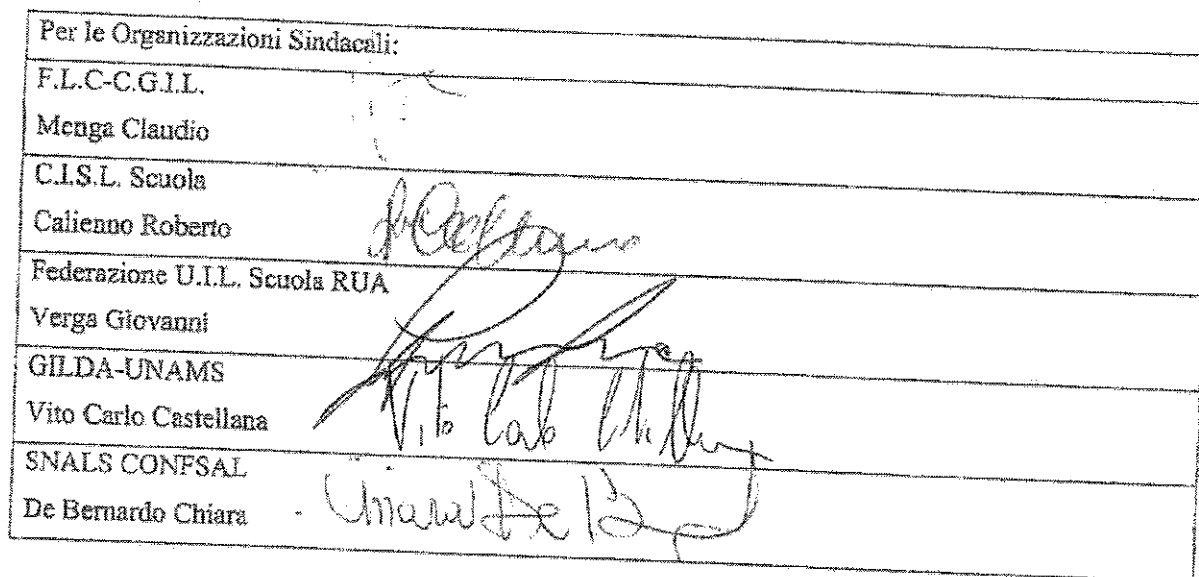 Per le Organizzazioni Sindacali:
F.L.C-C.G.I.L.
Menga Claudio
C.I.S.L. Scuola
Calienno Roberto
Federazione U.I.L. Scuola RUA
Verga Giovanni
GILDA-UNAMS
Vito Carlo Castellana
Vito Carlo
SNALS CONFSAL
De Bernardo Chiara
Chiara De B